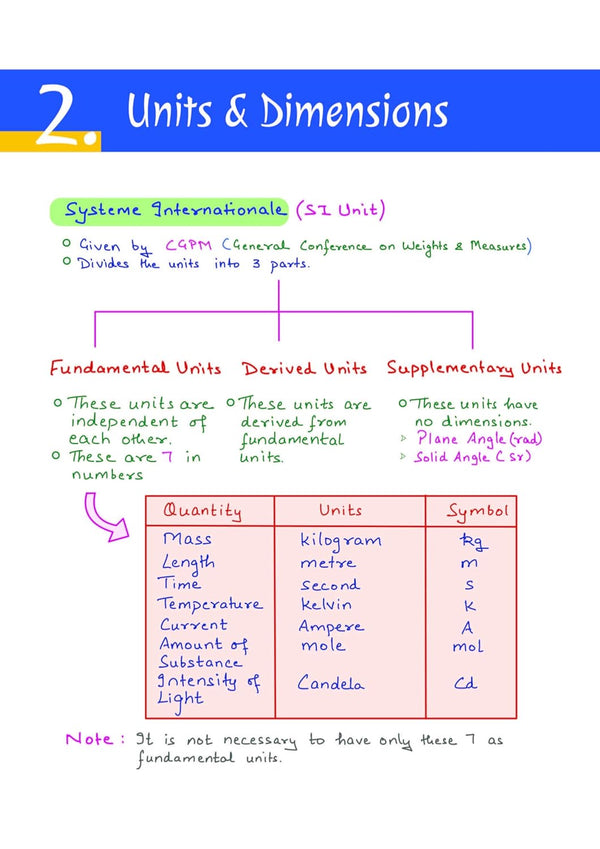 2. Units & Dimensions
Systeme Internationale (SI Unit)
Given by CGPM (General Conference on Weights & Measures)
Divides the units into 3 parts.
Fundamental Units
These units are
independent of
each other.
These are 7 in
numbers
Derived Units
These units are
derived from
fundamental
units.
Supplementary Units
These units have
no dimensions.
Plane Angle (rad)
Solid Angle (Sr)
Quantity Units Symbol
Mass kilogram kg
Length metre m
Time second s
Temperature kelvin K
Current Ampere A
Amount of mole mol
Substance
Intensity of Candela Cd
Light
Note : It is not necessary to have only these 7 as
fundamental units.